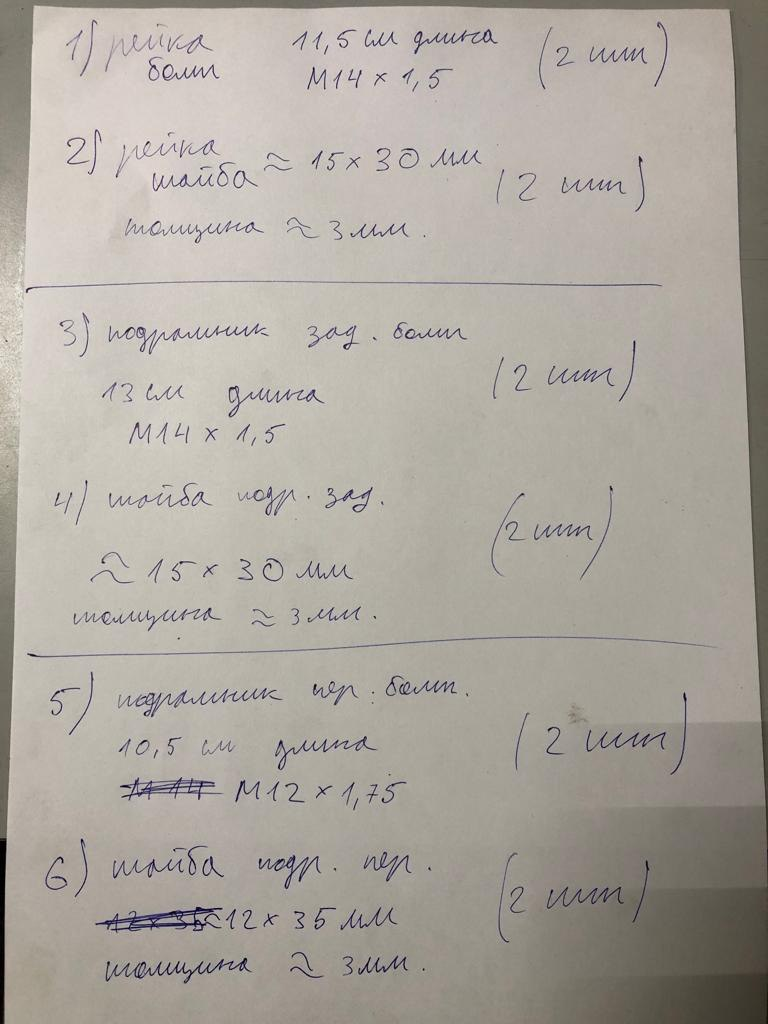 1) рейка 11,5 см длина (2 шт)
болт М14 × 1,5
2) рейка
шайба ≈ 15 × 30 мм (2 шт)
толщина ≈ 3 мм.
3) подрамник зад. болт
(2 шт)
13 см длина
М14 × 1,5
4) шайба подр. зад.
(2 шт)
≈ 15 × 30 мм
толщина ≈ 3 мм.
5) подрамник пер. болт.
10,5 см длина (2 шт)
М14 М12 × 1,75
6) шайба подр. пер.
(2 шт)
12 × 35 ≈ 12 × 35 мм
толщина ≈ 3 мм.